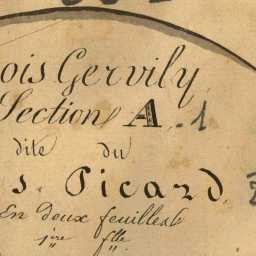 ois Gervily
Section A. 1
dite du
s. Picard,
En Deux feuillets
1ère flle